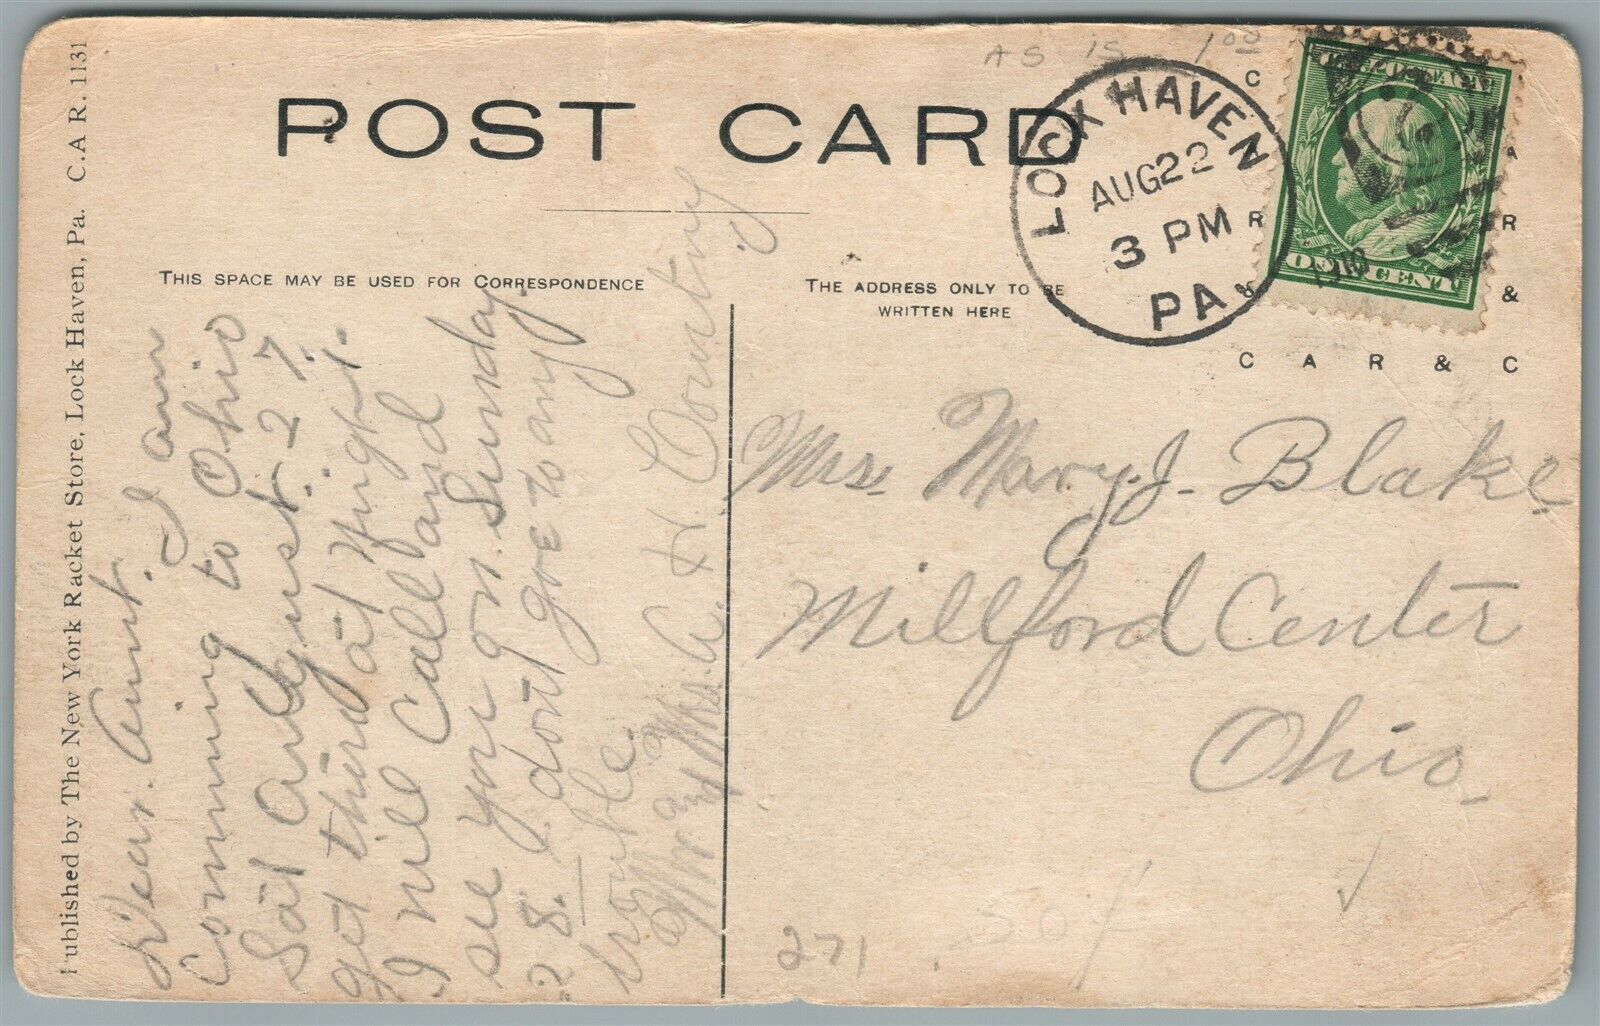 AS IS 1.00
POST CARD
THIS SPACE MAY BE USED FOR CORRESPONDENCE
THE ADDRESS ONLY TO BE
WRITTEN HERE
LOCK HAVEN
AUG 22
3 PM
1910
PA
ONE CENT
C
R
&
A
R
&
C A R & C
Published by The New York Racket Store, Lock Haven, Pa. C.A.R. 1131
Dear. Aunt. I am
Comming to Ohio
Sat August 27.
get thire at Night.
I will Call and
see you on Sunday.
28. I dont goe to any
trouble.
Mr & Mrs. A. H. Courtny
Mrs. Mary. J. Blake
Millford Center
Ohio.
271
50